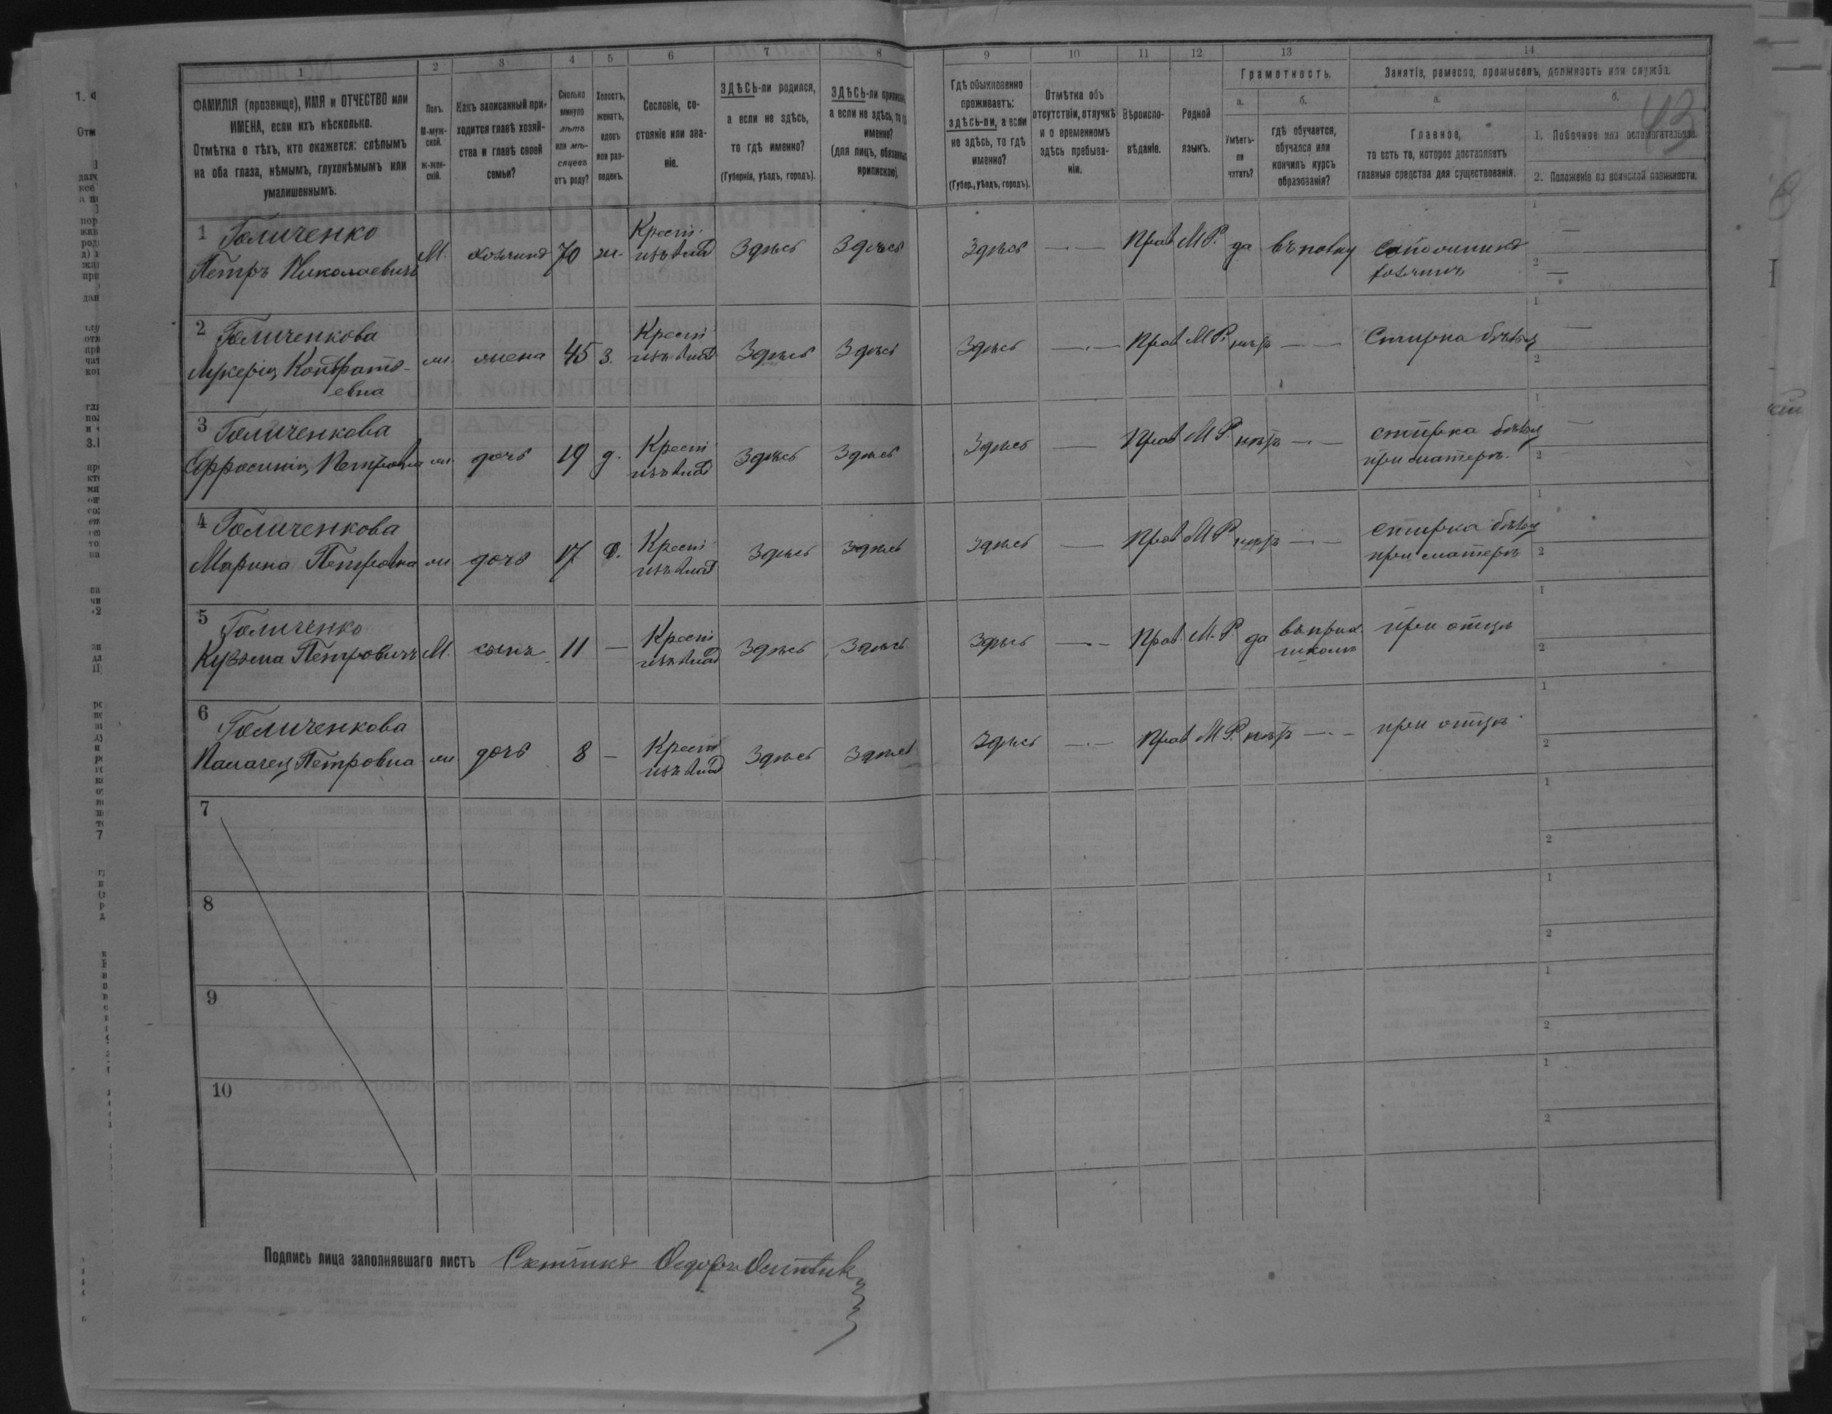 43
1 2 3 4 5 6 7 8 9 10 11 12 13 14
ФАМИЛІЯ (прозвище), ИМЯ и ОТЧЕСТВО или
ИМЕНА, если ихъ нѣсколько.
Отмѣтка о тѣхъ, кто окажется: слѣпымъ
на оба глаза, нѣмымъ, глухонѣмымъ или
умалишеннымъ.
Полъ.
М-муж-
ской.
Ж-жен-
скій.
Какъ записанный при-
ходится главѣ хозяй-
ства и главѣ своей
семьи?
Сколько
минуло
лѣтъ
или мѣ-
сяцевъ
отъ роду?
Холостъ,
женатъ,
вдовъ
или раз-
веденъ.
Сословіе, со-
стояніе или зва-
ніе.
ЗДѢСЬ-ли родился,
а если не здѣсь,
то гдѣ именно?
(Губернія, уѣздъ, городъ).
ЗДѢСЬ-ли приписанъ,
а если не здѣсь, то гдѣ
именно?
(для лицъ, обязанныхъ
припискою).
Гдѣ обыкновенно
проживаетъ:
здѣсь-ли, а если
не здѣсь, то гдѣ
именно?
(Губер., уѣздъ, городъ).
Отмѣтка объ
отсутствіи, отлучкѣ
и о временномъ
здѣсь пребыва-
ніи.
Вѣроиспо-
вѣданіе.
Родной
языкъ.
Грамотность.
а.
Умѣетъ-
ли
читать?
б.
гдѣ обучается,
обучался или
кончилъ курсъ
образованія?
Занятіе, ремесло, промыселъ, должность или служба.
а.
Главное,
то есть то, которое доставляетъ
главныя средства для существованія.
б.
1. Побочное или вспомогательное.
2. Положеніе по воинской повинности.
1 Галиченко
Петръ Николаевичъ М. хозяинъ 70 ж. Крест. изъ влад Здѣсь Здѣсь Здѣсь — Прав М.Р. да въ полку
хозяинъ
2 Галиченкова
Лукерія Кондрать-
евна ж жена 45 з. Крест изъ влад Здѣсь Здѣсь Здѣсь — Прав М.Р. нѣтъ — Стирка бѣлья
3 Галиченкова
Ефросинія Петровна ж дочь 19 д. Крест изъ влад Здѣсь Здѣсь Здѣсь — Прав М.Р. нѣтъ — стирка бѣлья
при матери.
4 Галиченкова
Марина Петровна ж дочь 17 д. Крест изъ влад Здѣсь Здѣсь Здѣсь — Прав М.Р. нѣтъ — стирка бѣлья
при матери
5 Галиченко
Кузьма Петровичъ М. сынъ 11 — Крест изъ влад Здѣсь Здѣсь Здѣсь — Прав. М.Р. да въ прих. школѣ при отцѣ
6 Галиченкова
Палагея Петровна ж дочь 8 — Крест изъ влад Здѣсь Здѣсь Здѣсь — Прав М.Р. нѣтъ — при отцѣ
7
8
9
10
Подпись лица заполнявшаго листъ Счетчикъ Ѳедоръ